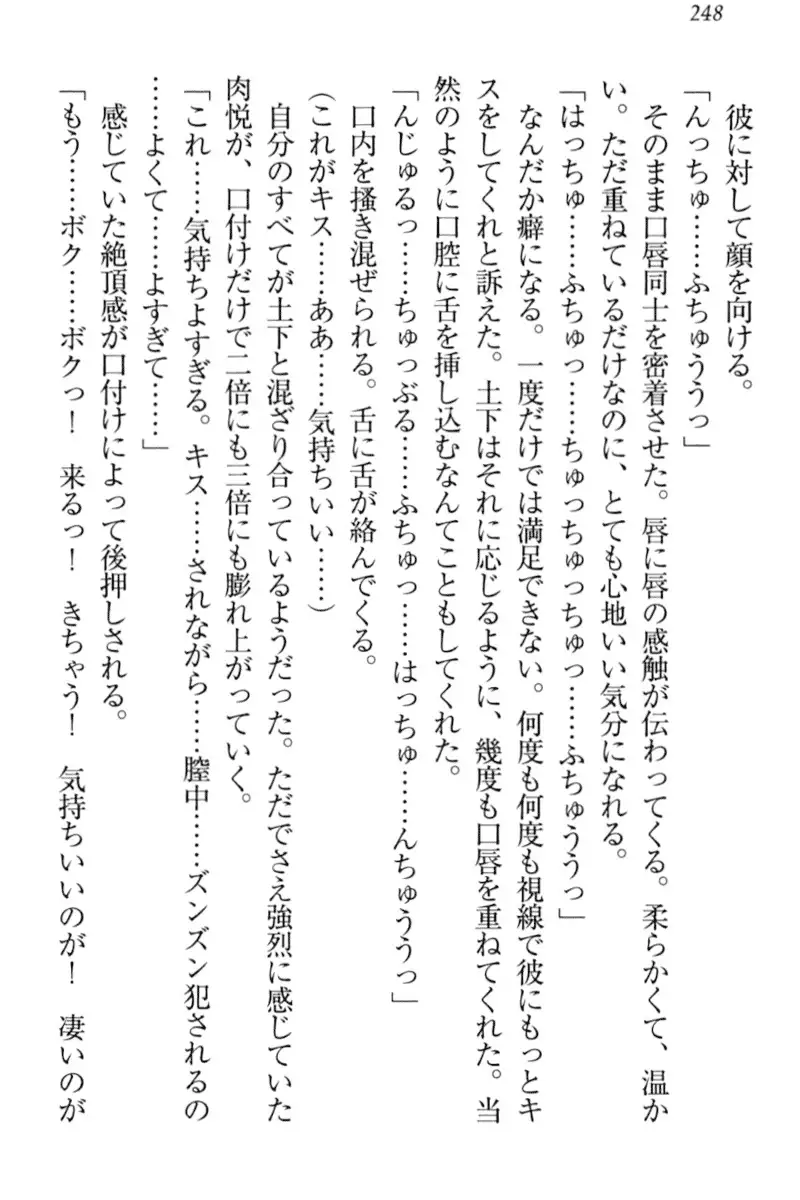 248
彼に対して顔を向ける。
「んっちゅ……ふちゅううっ」
そのまま口唇同士を密着させた。唇に唇の感触が伝わってくる。柔らかくて、温か
い。ただ重ねているだけなのに、とても心地いい気分になれる。
「はっちゅ……ふちゅっ……ちゅっちゅっちゅっ……ふちゅううっ」
なんだか癖になる。一度だけでは満足できない。何度も何度も視線で彼にもっとキ
スをしてくれと訴えた。土下はそれに応じるように、幾度も口唇を重ねてくれた。当
然のように口腔に舌を挿し込むなんてこともしてくれた。
「んじゅるっ……ちゅっぶる……ふちゅっ……はっちゅ……んちゅううっ」
口内を掻き混ぜられる。舌に舌が絡んでくる。
(これがキス……ああ……気持ちいい……)
自分のすべてが土下と混ざり合っているようだった。ただでさえ強烈に感じていた
肉悦が、口付けだけで二倍にも三倍にも膨れ上がっていく。
「これ……気持ちよすぎる。キス……されながら……膣中……ズンズン犯されるの
……よくて……よすぎて……」
感じていた絶頂感が口付けによって後押しされる。
「もう……ボク……ボクっ！　来るっ！　きちゃう！　気持ちいいのが！　凄いのが